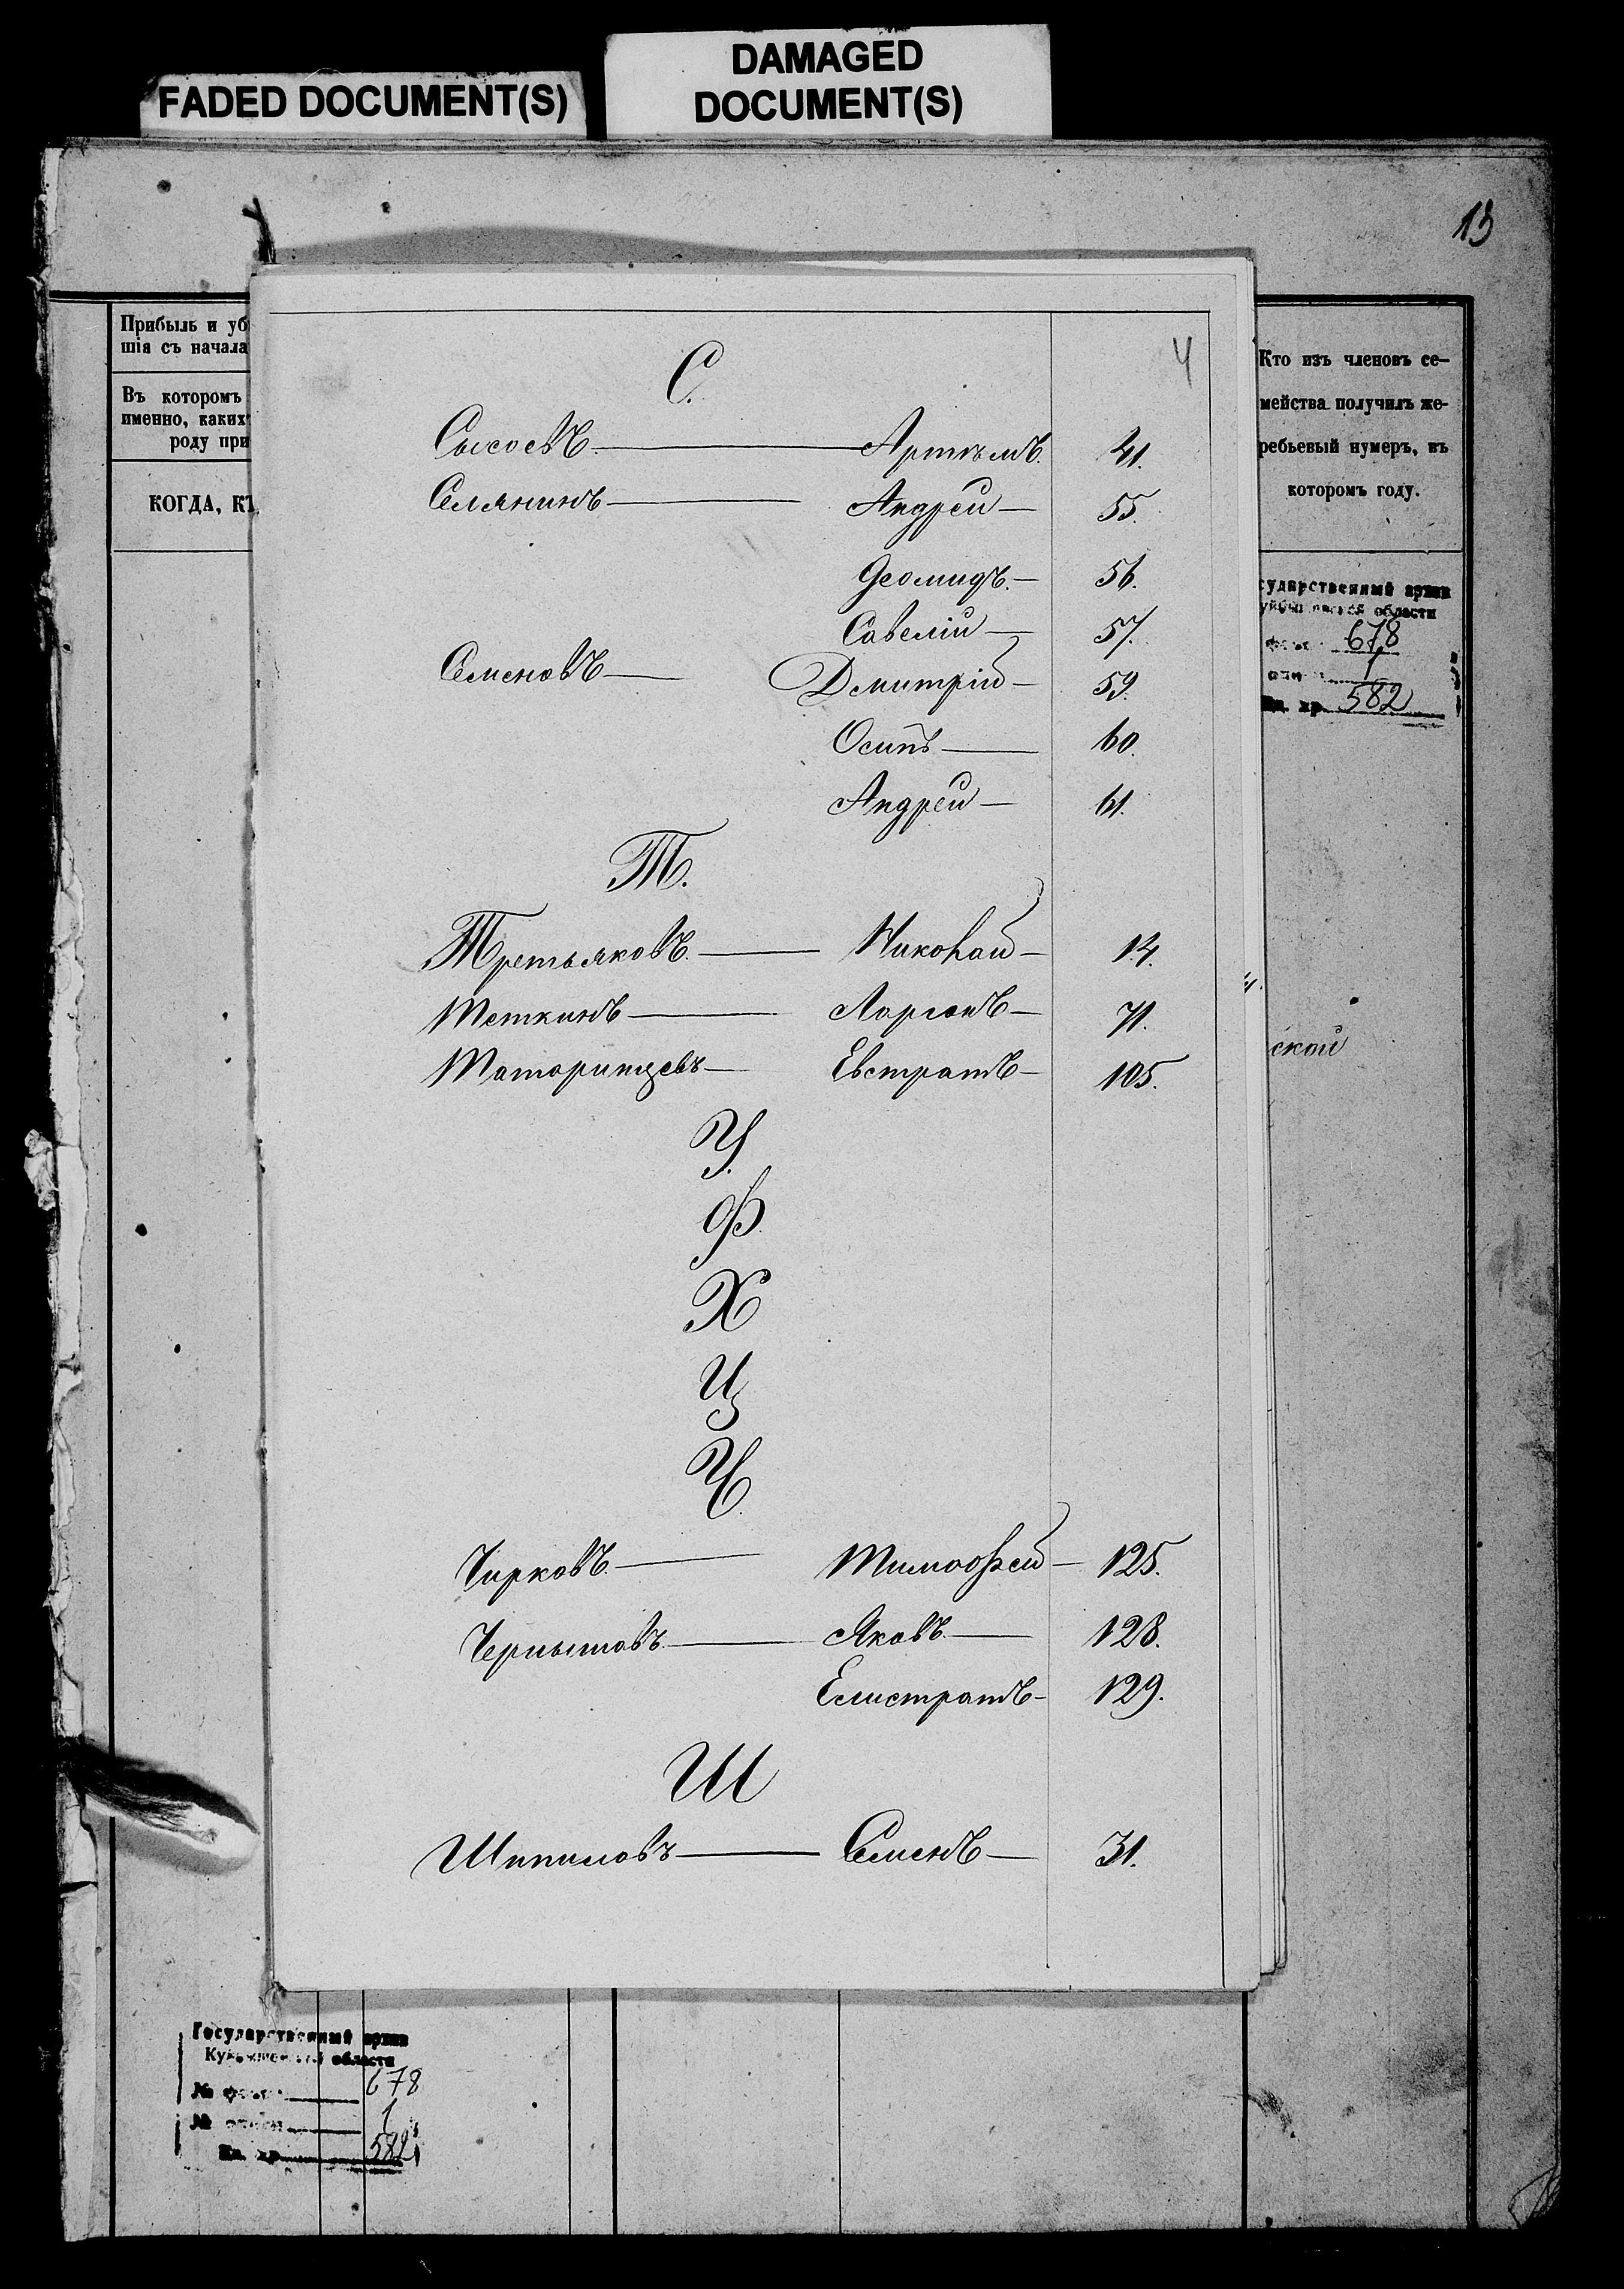 FADED DOCUMENT(S)
DAMAGED
DOCUMENT(S)
13
Прибыль и уб
шія съ начала
Въ которомъ
именно, каких
роду при
КОГДА, КТ
4
С.
Сысоевъ — Артѣмъ 41.
Селянинъ — Андрей — 55.
Деомидъ. — 56.
Савелій — 57.
Семеновъ — Дмитрій — 59.
Осипъ — 60.
Андрей — 61.
Т.
Третьяковъ — Николай — 14.
Теткинъ — Ларіонъ — 71.
Татаринцевъ — Евстратъ — 105.
У.
Ф.
Х
Ц
Ч.
Чирковъ — Тимофей — 125.
Чернышовъ — Яковъ — 128.
Елистратъ — 129.
Ш
Шипиловъ — Семенъ — 31.
Кто изъ членовъ се-
мейства получилъ же-
ребьевый нумеръ, въ
которомъ году.
сударственный архив
области
678
1
Ед. хр. 582
ской
Государственный архив
Куйбышевской области
№ фонда 678
№ описи 1
Ед. хр. 582